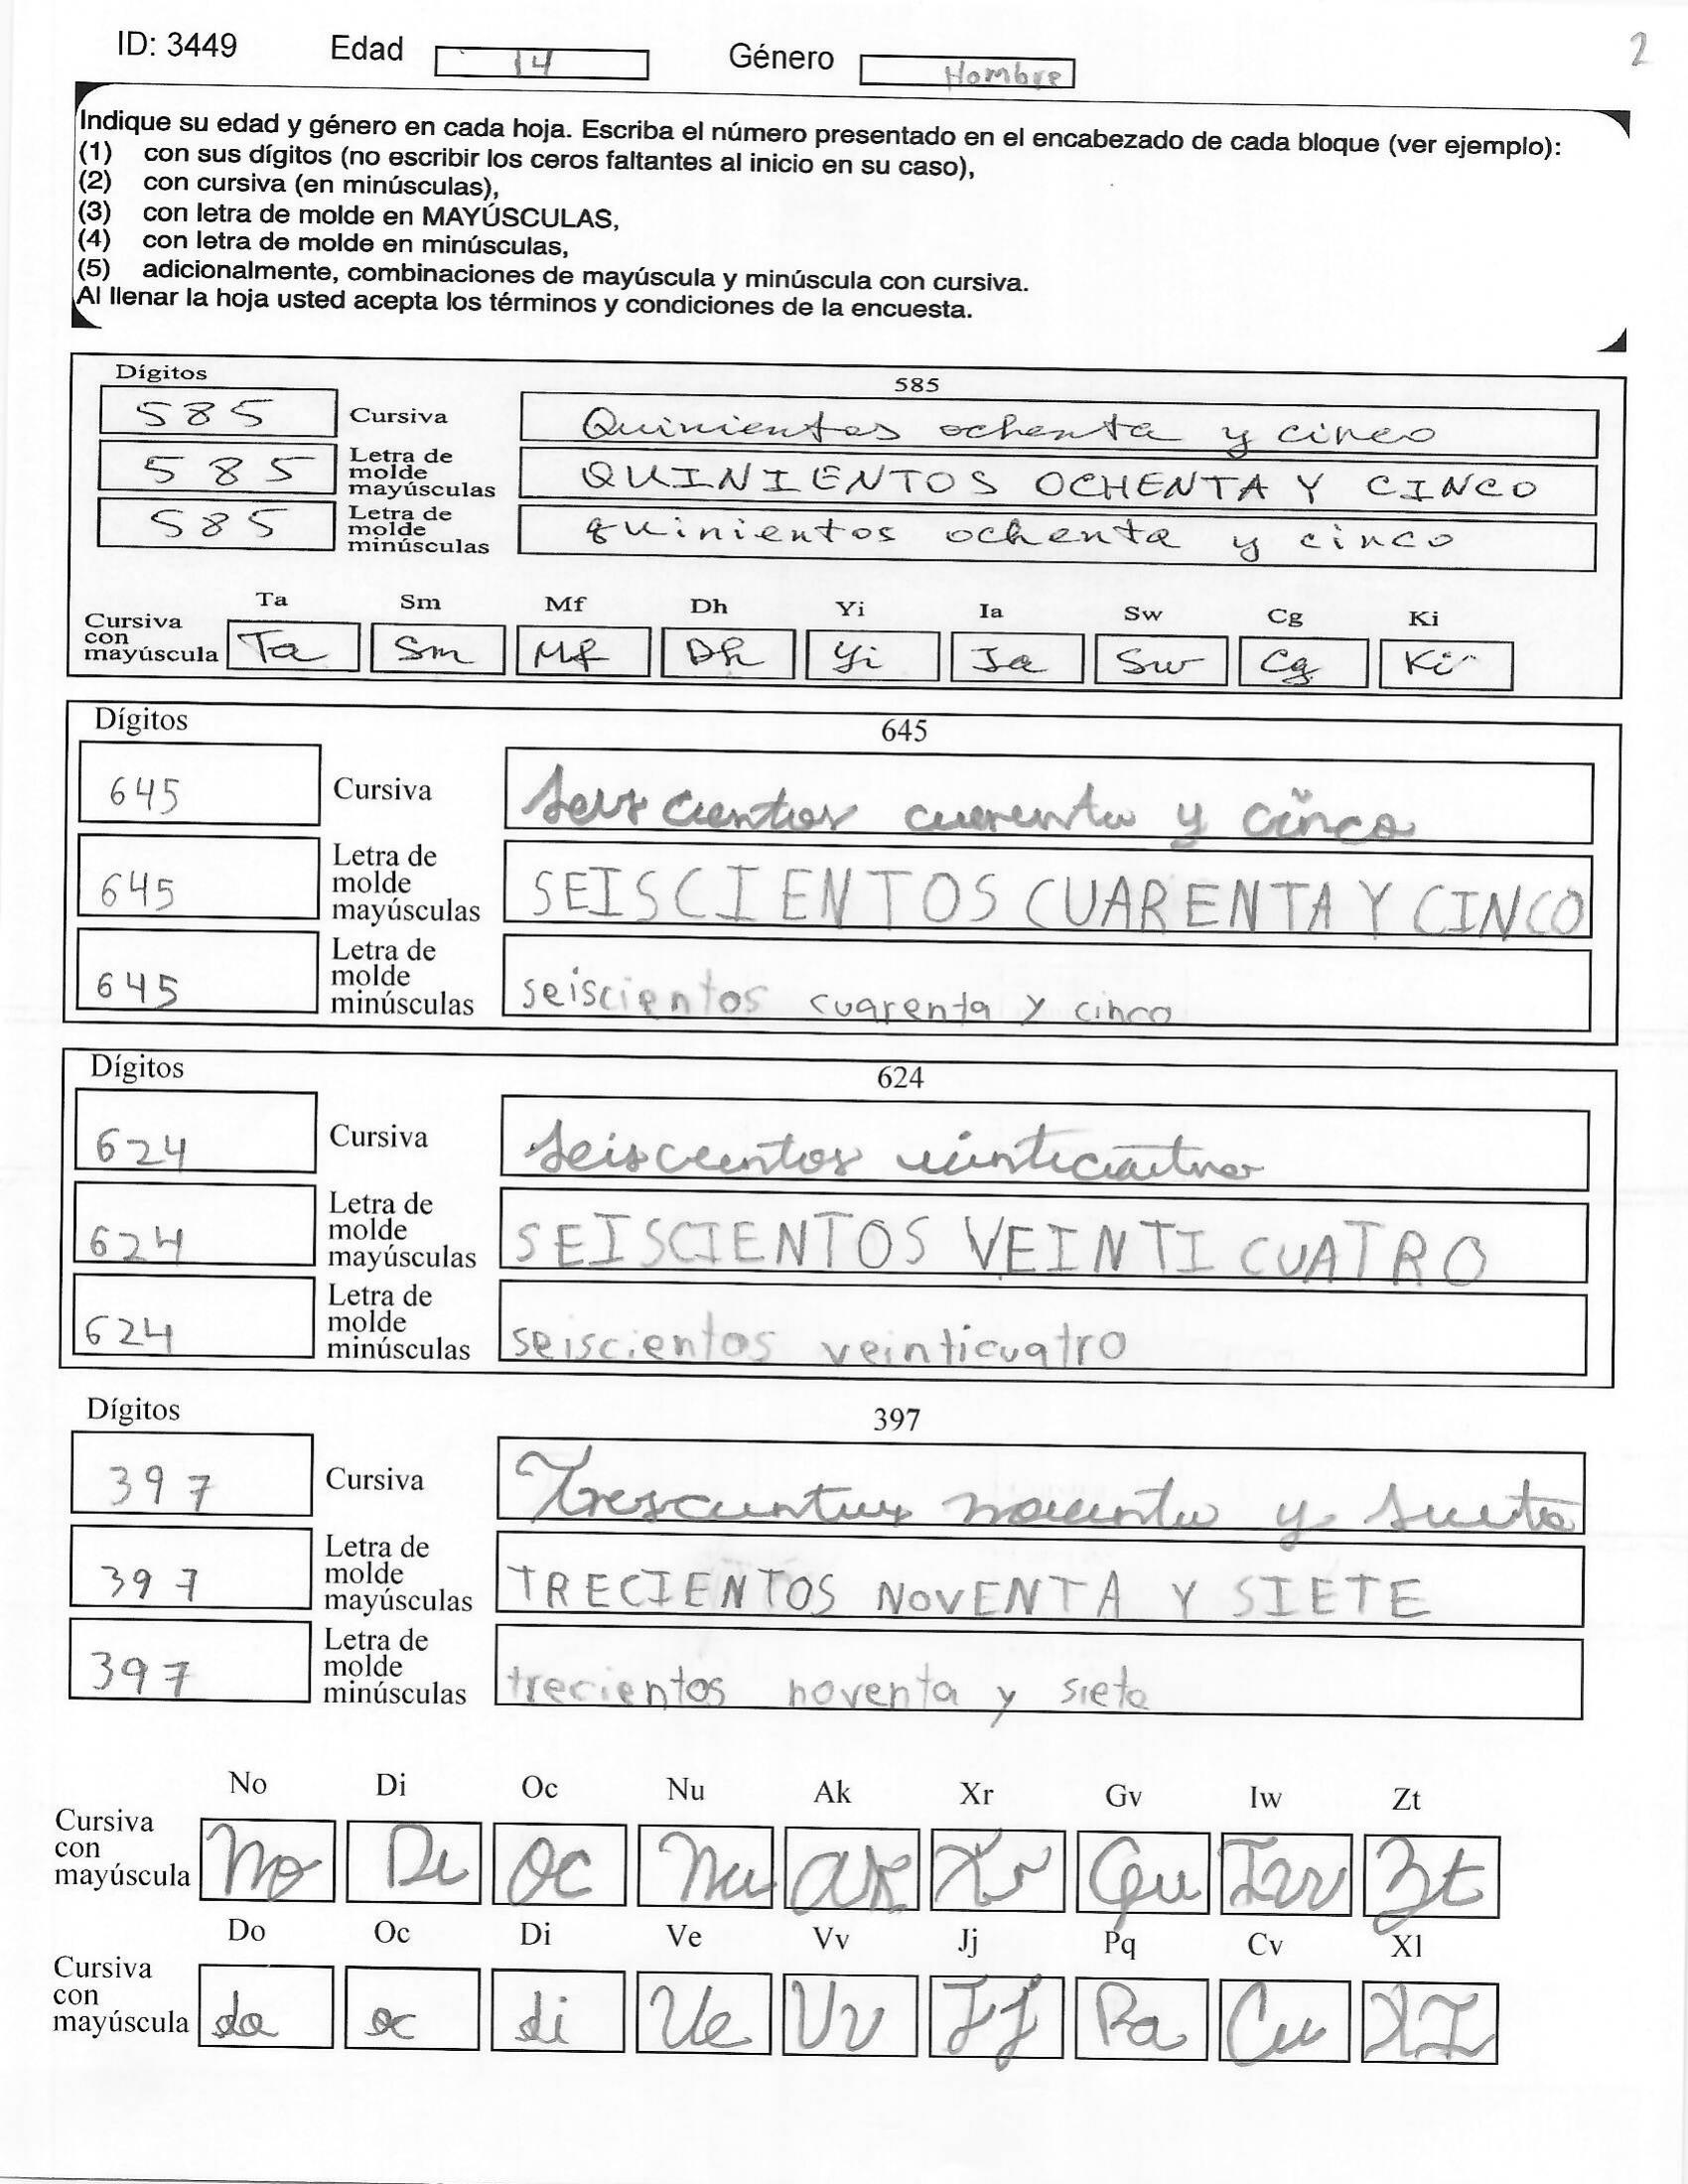 ID: 3449 Edad 14 Género Hombre 2
Indique su edad y género en cada hoja. Escriba el número presentado en el encabezado de cada bloque (ver ejemplo):
(1) con sus dígitos (no escribir los ceros faltantes al inicio en su caso),
(2) con cursiva (en minúsculas),
(3) con letra de molde en MAYÚSCULAS,
(4) con letra de molde en minúsculas,
(5) adicionalmente, combinaciones de mayúscula y minúscula con cursiva.
Al llenar la hoja usted acepta los términos y condiciones de la encuesta.
Dígitos 585
585 Cursiva Quinientos ochenta y cinco
585 Letra de molde mayúsculas QUINIENTOS OCHENTA Y CINCO
585 Letra de molde minúsculas quinientos ochenta y cinco
Ta Sm Mf Dh Yi Ia Sw Cg Ki
Cursiva con mayúscula Ta Sm Mf Dh Yi Ia Sw Cg Ki
Dígitos 645
645 Cursiva seis cientos cuarenta y cinco
645 Letra de molde mayúsculas SEISCIENTOS CUARENTA Y CINCO
645 Letra de molde minúsculas seiscientos cuarenta y cinco
Dígitos 624
624 Cursiva seiscientos veinticuatro
624 Letra de molde mayúsculas SEISCIENTOS VEINTI CUATRO
624 Letra de molde minúsculas seiscientos veinticuatro
Dígitos 397
397 Cursiva Trescientos noventa y siete
397 Letra de molde mayúsculas TRECIENTOS NOVENTA Y SIETE
397 Letra de molde minúsculas trecientos noventa y siete
No Di Oc Nu Ak Xr Gv Iw Zt
Cursiva con mayúscula No Di Oc Nu Ak Xr Gv Iw Zt
Do Oc Di Ve Vv Jj Pq Cv Xl
Cursiva con mayúscula do oc di Ve Vv Jj Pa Cu XI